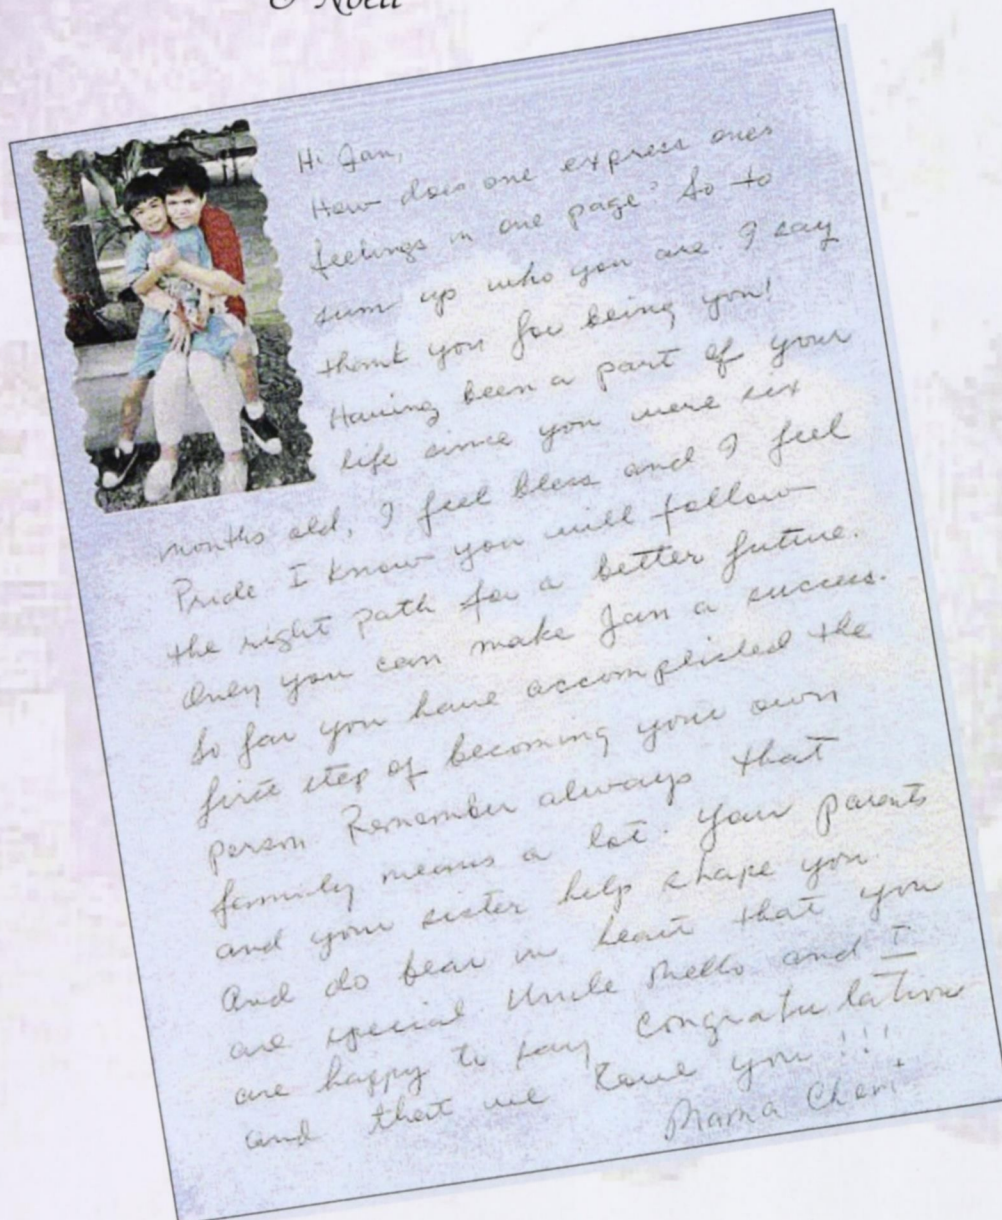 & Noell
Hi Jan,
How does one express one's
feelings in one page? So to
sum up who you are. I say
thank you for being you!
Having been a part of your
life since you were six
months old, I feel bless and I feel
Pride I know you will follow
the right path for a better future.
Only you can make Jan a success.
So far you have accomplished the
first step of becoming your own
person. Remember always that
family means a lot. Your parents
and your sister help shape you.
And do bear in heart that you
are special Uncle Mello and I
are happy to say Congratulations
and that we love you!!!
Mama Cheri